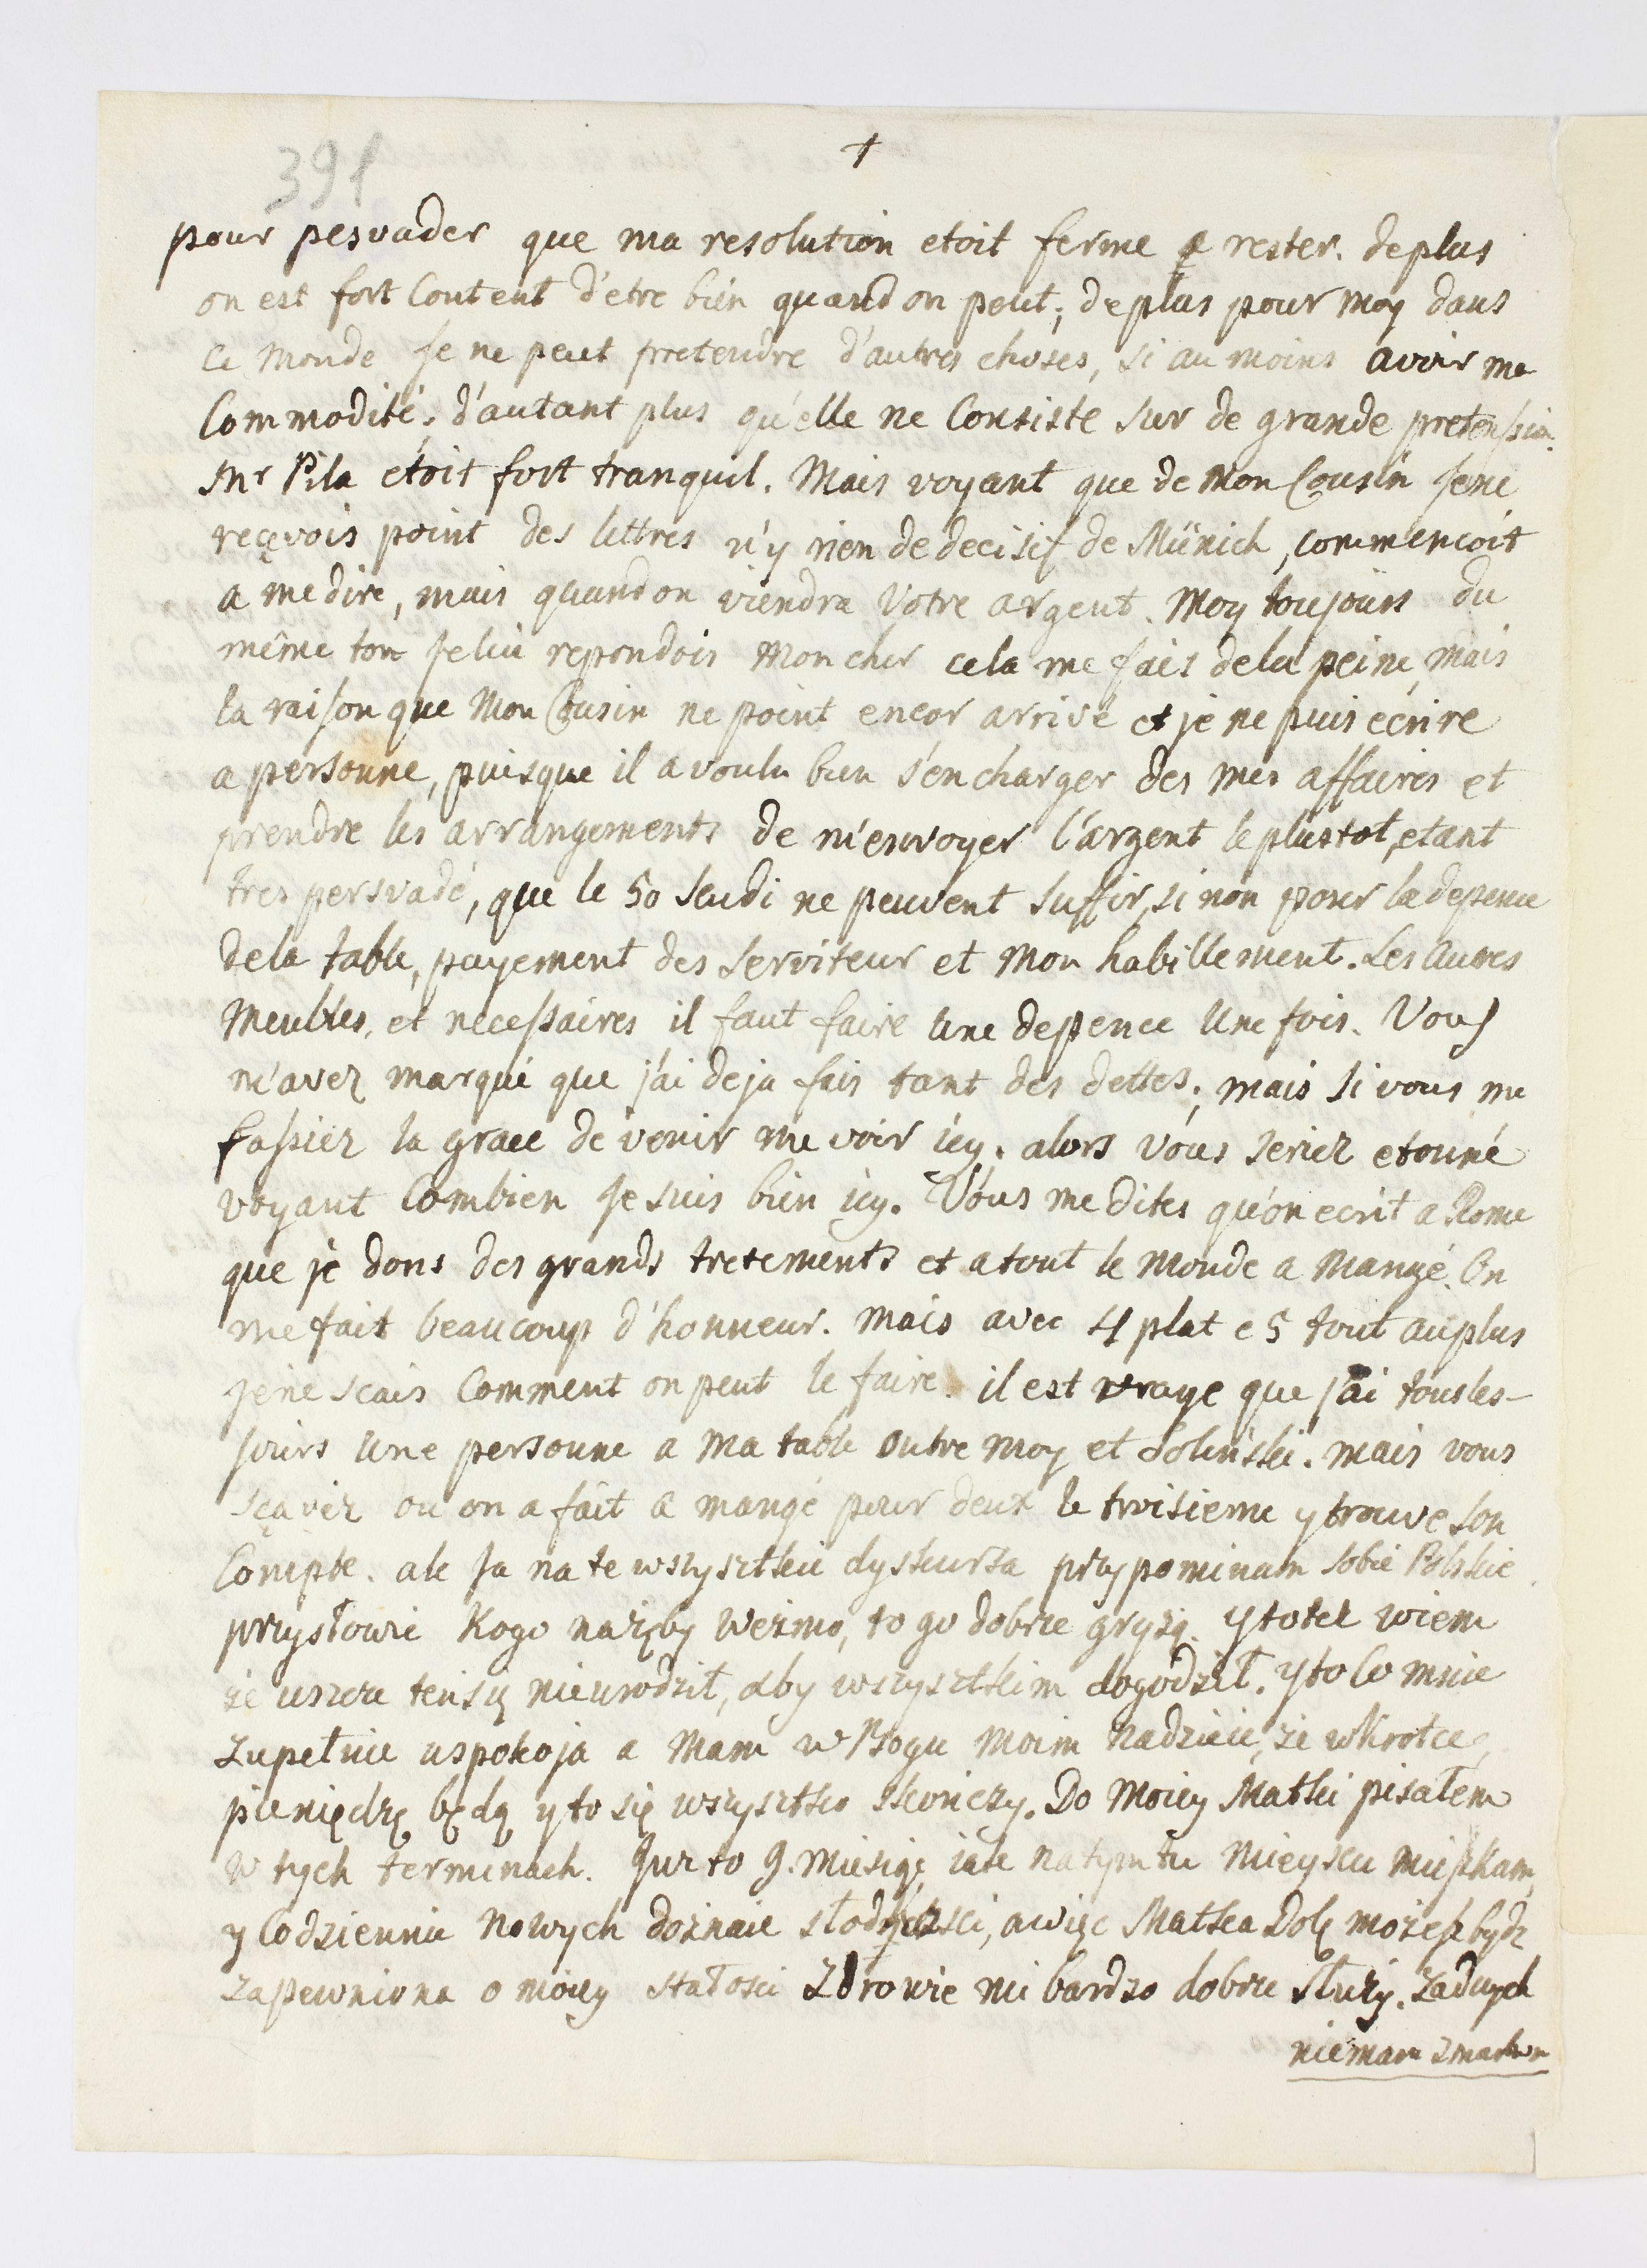 391
†
pour pesvader que ma resolution etoit ferme a rester. deplus
on est fort Content d'etre bien quand on peut; deplus pour moy dans
ce Monde Je ne peut pretendre d'autres choses, si au moins avoir ma
Commodité, d'autant plus qu'elle ne Consiste sur de grande pretension
Mr Pila etoit fort tranquil. Mais voyant que de Mon Cousin Jene
reçevois point des lettres n'y rien de decisif de Münich, commencoit
a me dire, mais quand on viendra Votre argent. Moy toujours du
même ton Jelui repondois Mon cher cela me fais dela peine, mais
la raison que Mon Cousin ne point encor arrivé et je ne puis ecrire
a personne, puisque il a voulu bien s'encharger des mes affaires et
prendre les arrangements de m'envoyer l'argent le plustot, etant
tres persvadé, que le 50 Scudi ne peuvent suffir, si non pour la depence
dela table, payement des Serviteur et Mon habillement. Les Autres
Meubles, et necessaires il faut faire Une depence Une fois. Vous
m'avez marqué que j'ai deja fais tant des dettes; mais si vous me
fassiez la grace de venir me voir icy. alors vous seriez etonné
voyant Combien Je suis bien icy. Vous me dites qu'on ecrit a Rome
que je dons des grands tretements et a tout le Monde a Mangé. On
me fait beaucoup d'honneur. Mais avec 4 plat e 5 tout au plus
Jene scais Comment on peut le faire. il est vraye que j'ai tousles-
jours Une personne a Ma table outre moy et Soliński. mais vous
sçavez ou on a fait a mangé pour deux le troisieme y trouve son
Compte. ale Ja na te wszysztkie dyskursa przypominam sobie Polskie
przysłowie Kogo nazęby Wezmo, to go dobrze gryzą. Y totez wiem
że uszcze tensię nieurodził, aby wszysztkim dogodził. Yto Co mnie
zupełnie uspokoja a Mam w Bogu Moim Nadzieie, że wkrotce
pieniędzę będą y to się wszysztko skończy. Do Moiey Matki pisałem
w tych terminach. Jurz to 9. Miesiąc iak natymtu Mieyscu Mieszkam,
y Codziennie Nowych doznaie słodyczsci, awięc Matka Dolę możesz bydz
zapewniona o moiey stałości Zdrowie mi bardzo dobrze służy. Zadnych
niemam zmartwn